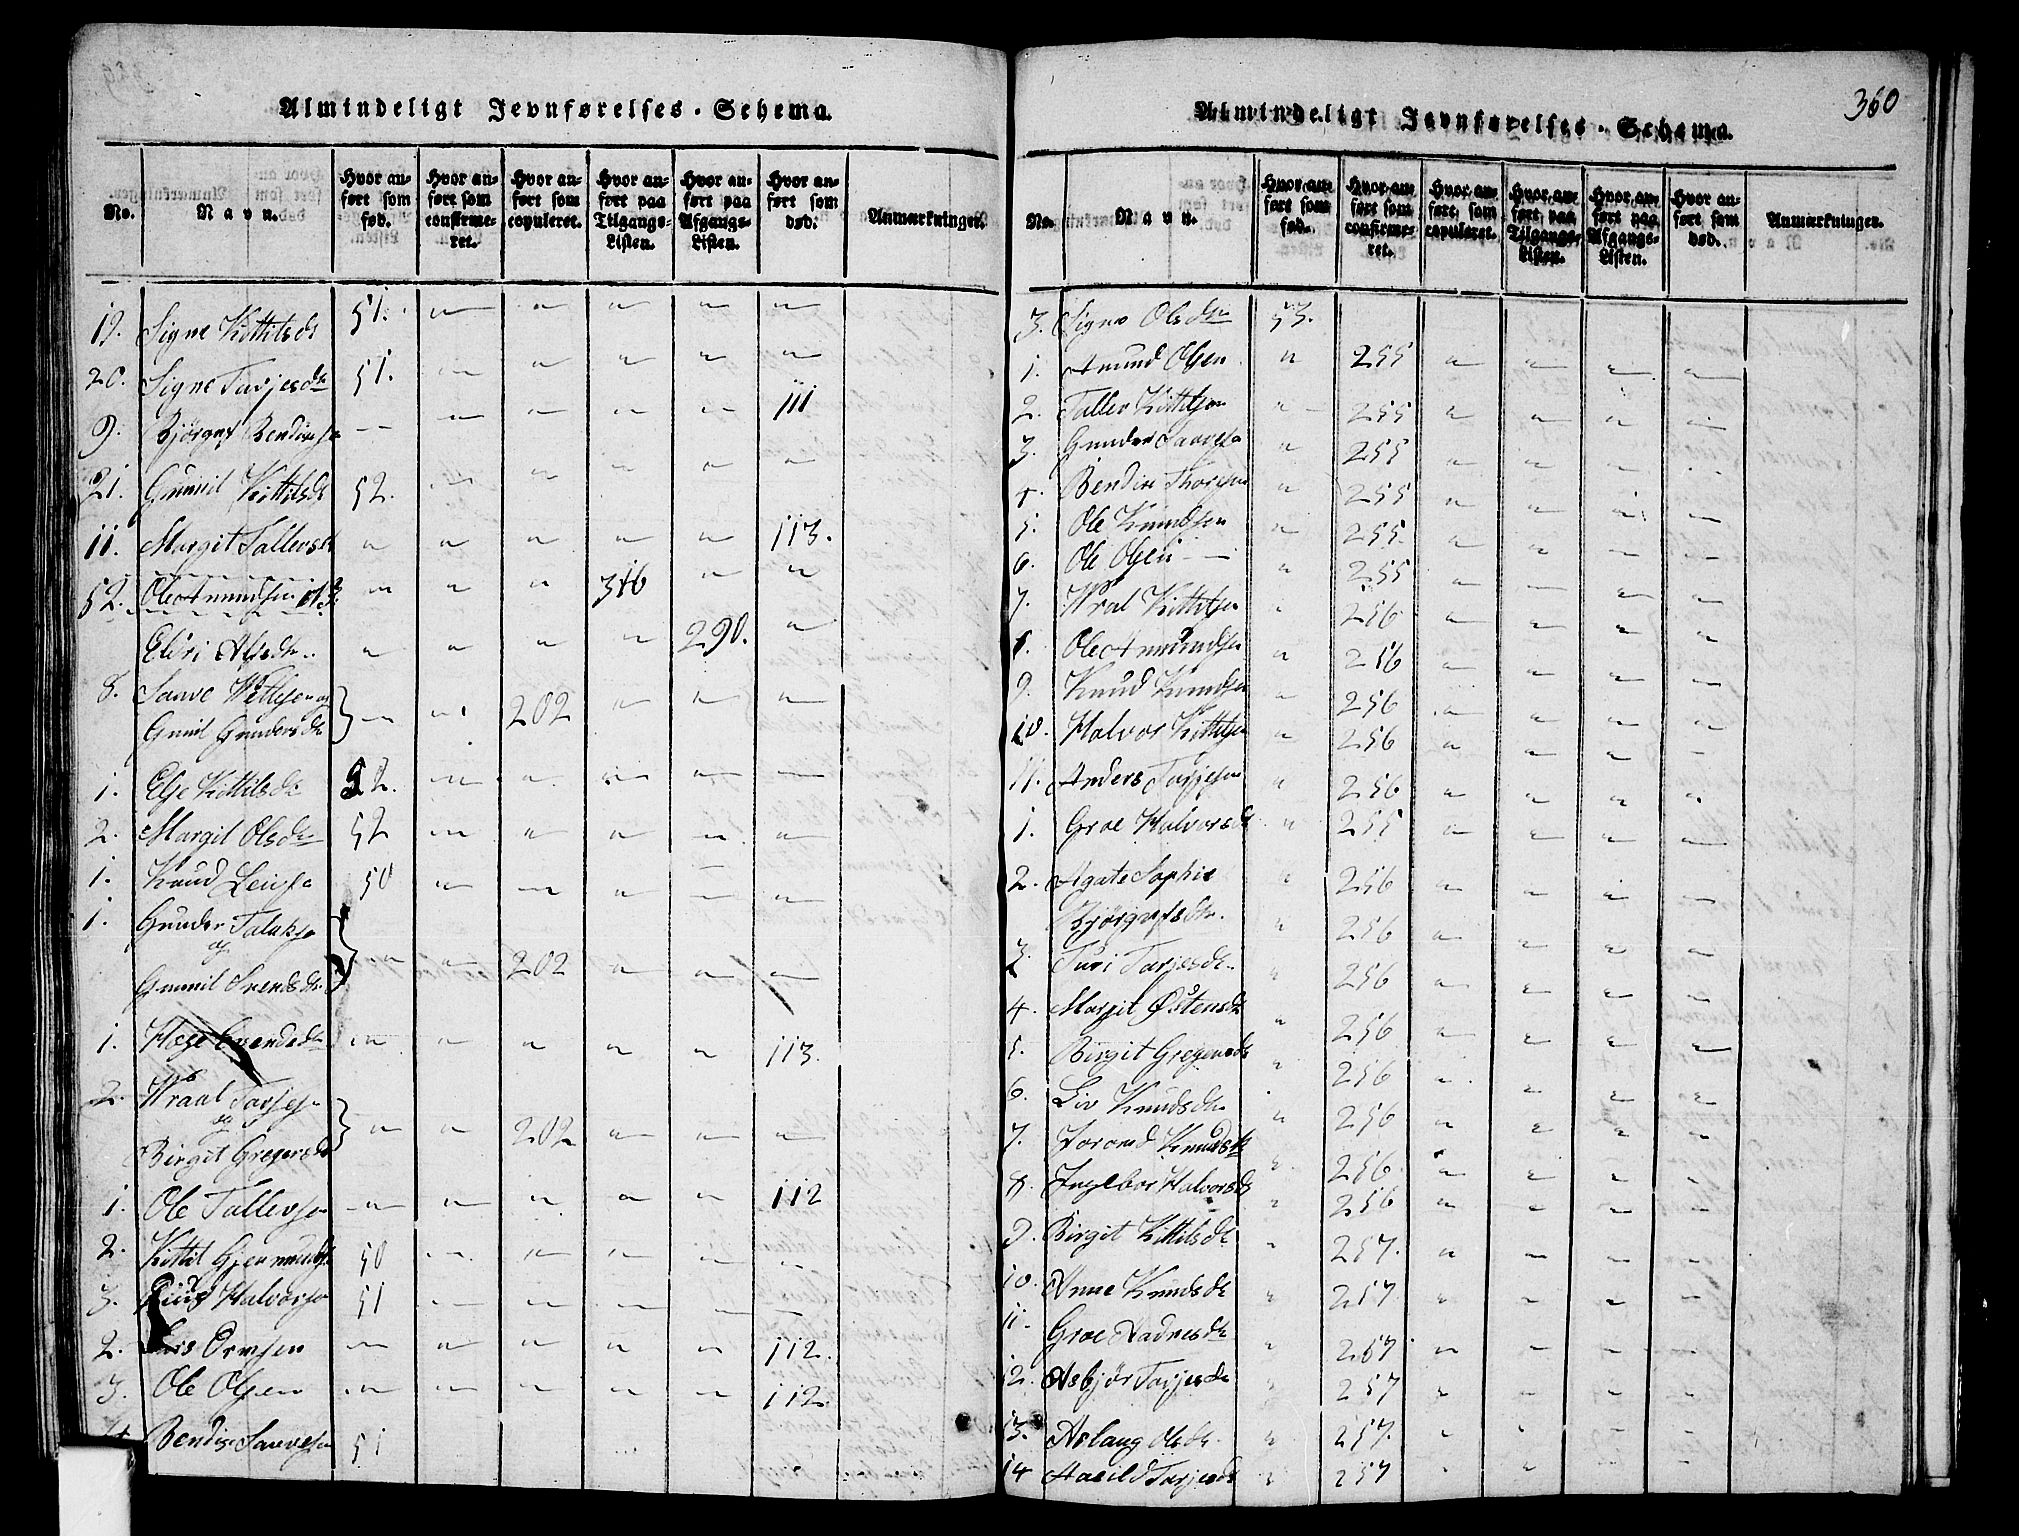 Almindeligt Jevnførelses-Schema.
No. Navn. Hvor anført som fød. Hvor anført som confirmeret. Hvor anført som copuleret. Hvor anført paa Tilgangs-Listen. Hvor anført paa Afgangs-Listen. Hvor anført som død. Anmærkninger.
19. Signe Kittilsdt 51. " " " " "
20. Signe Tarjesdtr 51. " " " " "
9. Bjørguf Bendixsen " " " " " 111
21. Gunnil Kittilsdt 52. " " " " "
11. Margit Tallevsdt " " " " " 113.
52. Ole Amundsen " " " 316 " "
Eliri Alfsdtr. " " " " 290. "
8. Saave Wetlesen og
Gunil Gundersdtr " " 202 " " "
1. Else Kittilsdtr 52. " " " " "
2. Margit Olsdtr 52 " " " " "
1. Knud Leifsen 50 " " " " "
1. Gunder Talaksen
og
Gunnil Svendsdtr " " 202 " " "
1. Hæge Svendsdtr " " " " " 113.
2. Wraal Tarjesen
og
Birgit Gregersdtr " " 202 " " "
1. Ole Tallevsen " " " " " 112
2. Kittil Gjermundsen 50 " " " " "
3. Halvorsen 51 " " " " "
2. Lars Ormsen " " " " " 112.
3. Ole Olsen " " " " " 112.
Bendix Saavesen 51
360
Almindeligt Jevnførelses-Schema.
No. Navn. Hvor anført som fød. Hvor anført som confirmeret. Hvor anført som copuleret. Hvor anført paa Tilgangs-Listen. Hvor anført paa Afgangs-Listen. Hvor anført som død. Anmærkninger.
3. Signe Olsdtr 53.
1. Amund Olsen " 255 " " " "
2. Tallev Kittilsen " 255 " " " "
3. Gunder Saavesen " 255 " " " "
4. Bendix Thorsen " 255 " " " "
5. Ole Knudsen " 255 " " " "
6. Ole Olsen " 255 " " " "
7. Wraal Kittilsen " 256 " " " "
8. Ole Amundsen " 256 " " " "
9. Knud Knudsen " 256 " " " "
10. Halvor Kittilsen " 256 " " " "
11. Anders Tarjesen " 256 " " " "
1. Groe Halvorsdt " 255 " " " "
2. Agate Sophie " 256 " " " "
Bjørgufsdtr. " 256 " " " "
3. Turi Tarjesdtr " 256 " " " "
4. Margit Østensdtr " 256 " " " "
5. Birgit Gregersdtr " 256 " " " "
6. Liv Knudsdtr " 256 " " " "
7. Jorond Knudsdtr " 256 " " " "
8. Ingebor Halvorsdt " 256 " " " "
9. Birgit Kittilsdtr " 257. " " " "
10. Anne Knudsdtr " 257 " " " "
11. Groe Aadnesdtr " 257 " " " "
12. Asbjør Tarjesdtr " 257 " " " "
13. Aslaug Olsdtr " 257. " " " "
14 Aasild Tarjesdt " 257 " " " "